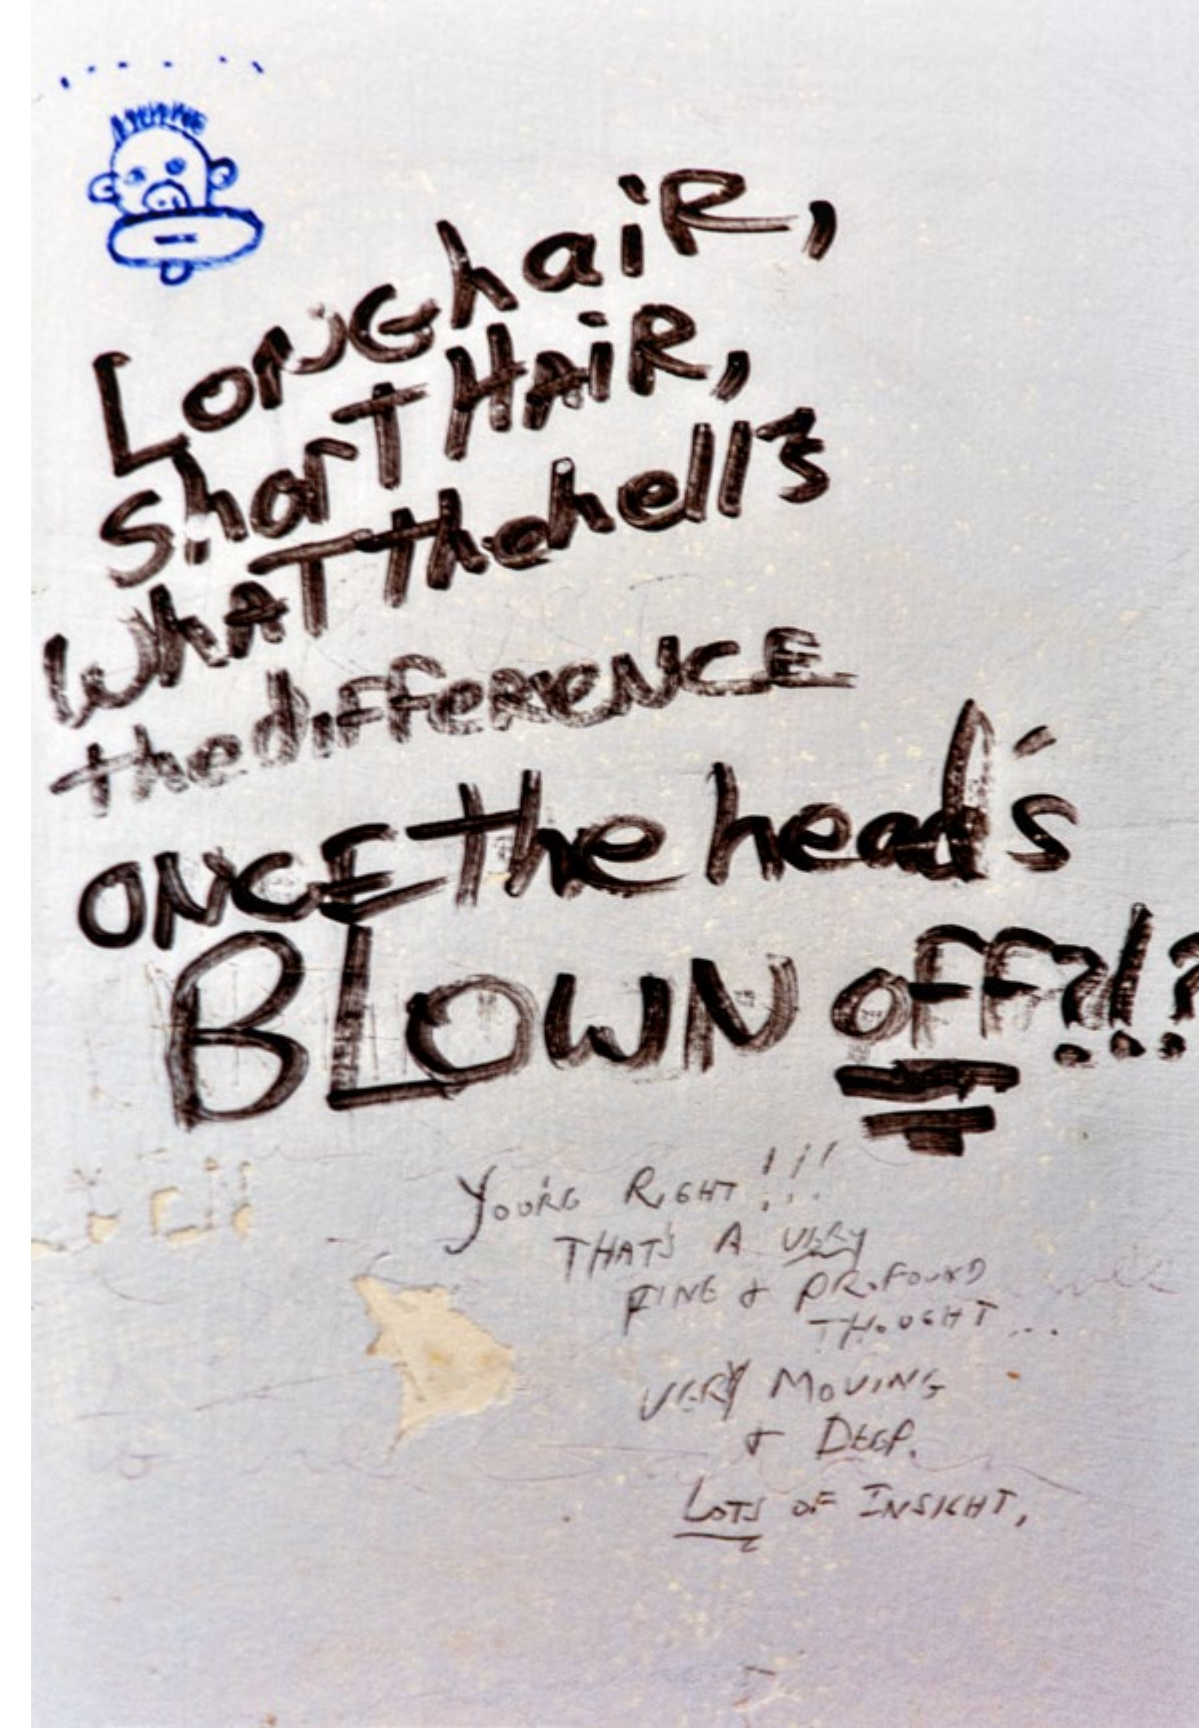 LONG haiR,
ShorT HAiR,
WhAT the hell's
the diFFeRENCE
ONCE the head's
BLOWN oFF?!?
YOU'RE RIGHT!!!
THAT'S A VERY
FINE & PROFOUND
THOUGHT...
VERY MOVING
& DEEP.
LOTS OF INSIGHT.